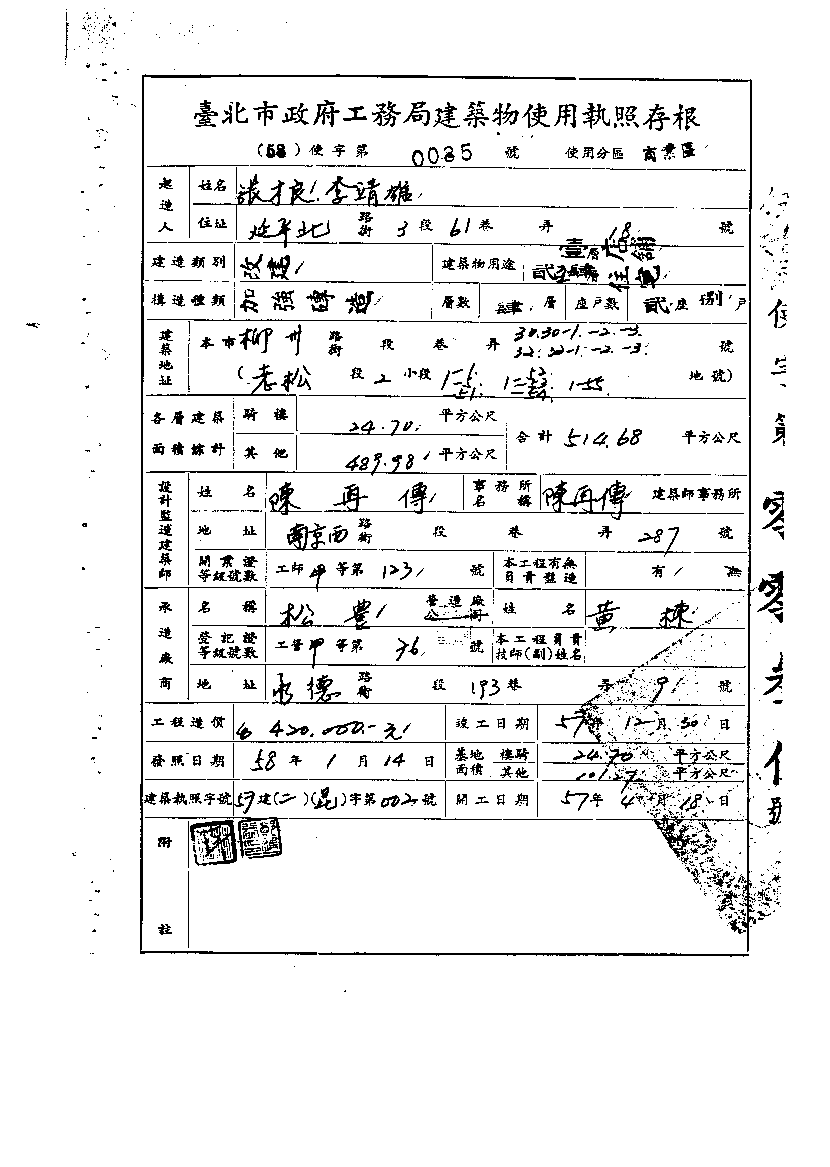 臺北市政府工務局建築物使用執照存根
(58)使字第 0035 號 使用分區 商業區
起造人 姓名 張才良 李靖雄
住址 延平北 路街 3 段 61 巷 弄 18 號
建造類別 改建 建築物用途 壹層店舖 貳至肆層住宅
構造種類 加強磚造 層數 肆 層 座戶數 貳 座 捌 戶
建築地址 本市 柳州 路街 段 巷 弄 30.30-1.-2.-3. 32.32-1.-2.-3. 號
(老松 段 2 小段 1-55 地號)
各層建築面積總計 騎樓 24.70 平方公尺 合計 514.68 平方公尺
其他 489.98 平方公尺
設計監造建築師 姓名 陳再傳 事務所名稱 陳再傳 建築師事務所
地址 南京西 路街 段 巷 弄 287 號
開業證等級號數 工師 甲 等第 1231 號 本工程有無負責監造 有 無
承造廠商 名稱 松豊 營造廠公司 姓名 黃棟
登記證等級號數 工營 甲 等第 36 號 本工程負責技師(副)姓名
地址 承德 路街 段 193 巷 弄 9 號
工程造價 420.000.-元 竣工日期 57 年 12 月 30 日
發照日期 58 年 1 月 14 日 基地面積 樓騎 24.70 平方公尺
其他 101.7 平方公尺
建築執照字號 57 建(二)(昆)字第 002 號 開工日期 57 年 4 月 18 日
附註
使字第零零參伍號